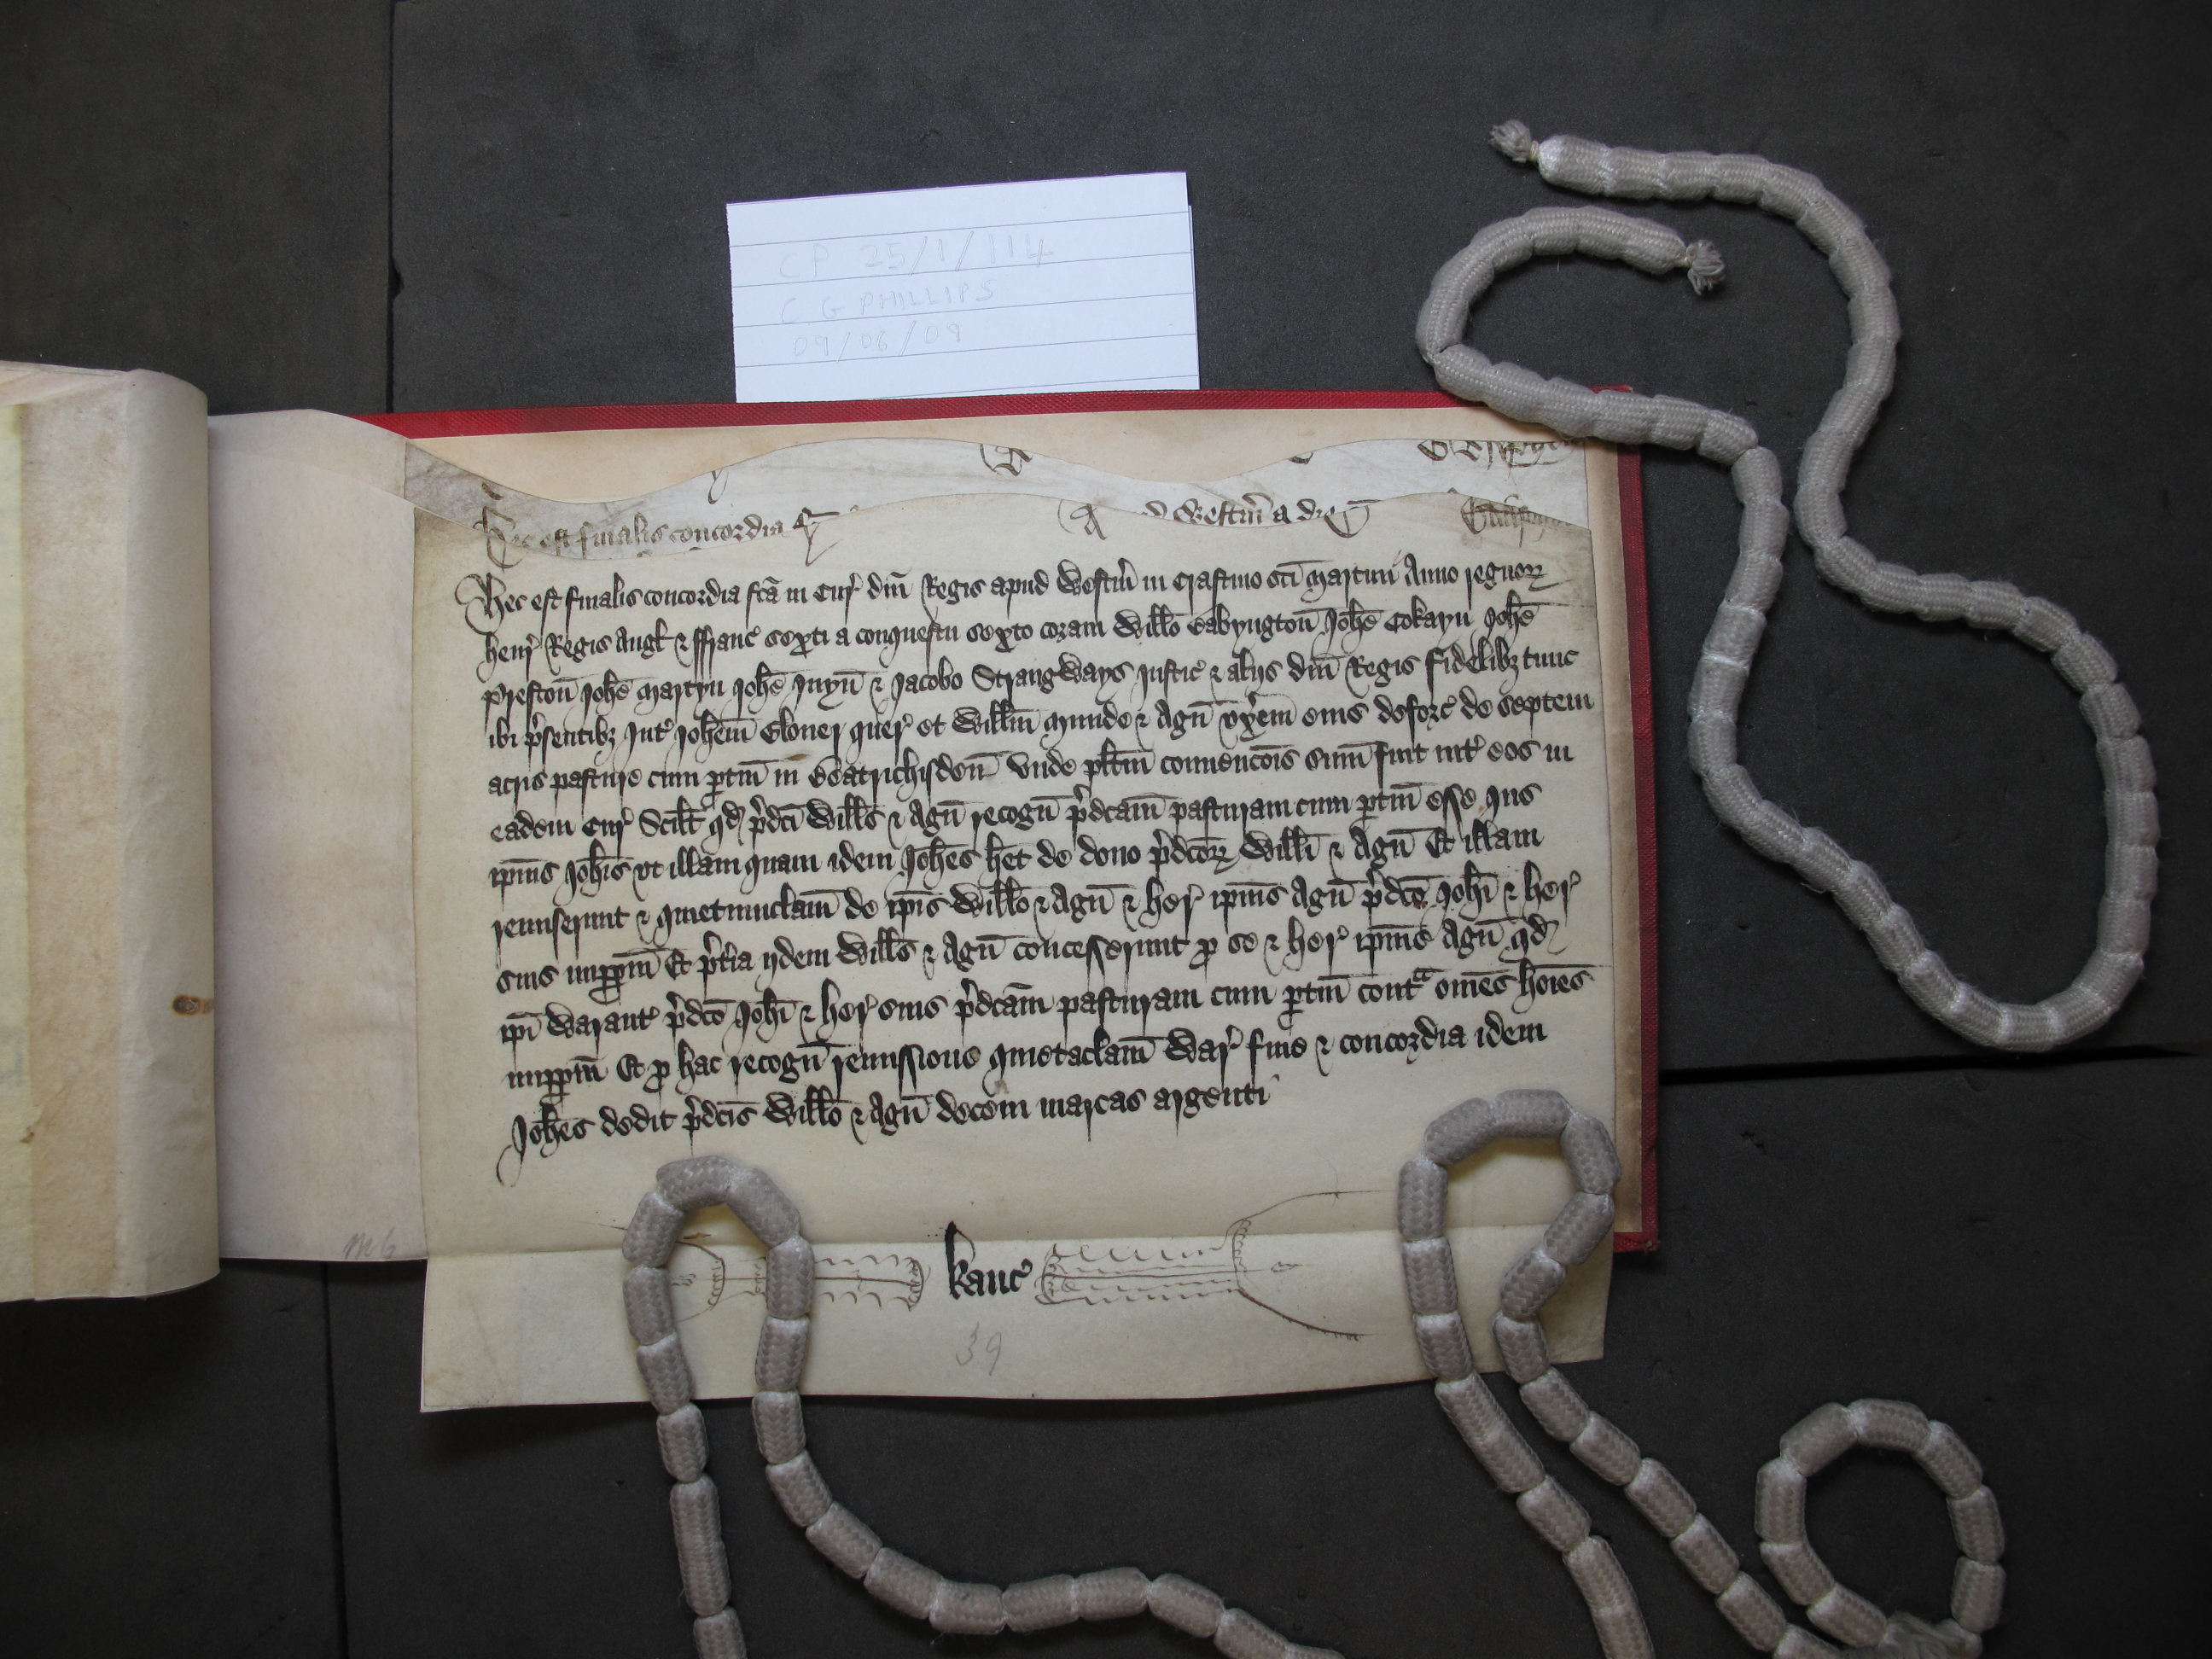 CP 25/1/114
C G PHILLIPS
09/06/09
Hec est finalis concordia
d Westm̄ a die
Hec est finalis concordia fc̄a in Cur̉ dn̄i Regis apud Westm̄ in Crastino sc̄i Martini Anno regnoꝝ
Henr̉ Regis Angł ⁊ Ffranc̉ sexti a conquestu sexto coram Willō Babyngton̄ Joh̄e Cokayn Joh̄e
Preston̄ Joh̄e Martyn Joh̄e Juyn̄ ⁊ Jacobo Strangways Justic̉ ⁊ alijs dn̄i Regis fidelibꝫ tunc
ibi p̉sentibꝫ Int̉ Joh̄em quer̉ et Willm̄ Munde ⁊ Agn̄ vx̄em eius deforc̉ de septem
acris pasture cum ꝑtin̄ in Beatrichisden̄ Vnde plītm̄ conuenc̄ois sum̄ fuit int̉ eos in
eadem Cur̉ Scilt̄ qd̉ p̉dc̄i Wills̄ ⁊ Agn̄ recogn̄ p̉dc̄am pasturam cum ꝑtin̄ esse Jus
ip̄ius Joh̄is vt illam quam idem Joh̄es h̄et de dono p̉dc̄oꝝ Willī ⁊ Agn̄ Et illam
remiserunt ⁊ quietumclam̄ de ip̄is Willō ⁊ Agn̄ ⁊ her̉ ip̄ius Agn̄ p̉dc̄o Joh̄i ⁊ her̉
suis imꝑpm̄ Et p̉t̉ia ijdem Wills̄ ⁊ Agn̄ concesserunt ꝓ se ⁊ her̉ ip̄ius Agn̄ qd̉
ip̄i Warant̉ p̉dc̄o Joh̄i ⁊ her̉ suis p̉dc̄am pasturam cum ꝑtin̄ contᵃ om̄es ho̅i̅es
imꝑpm̄ Et ꝓ hac recogn̄ remissione quietaclam̄ War̉ fine ⁊ concordia idem
Joh̄es dedit p̉dc̄is Willō ⁊ Agn̄ decem marcas argenti
kanc̉
39
m6